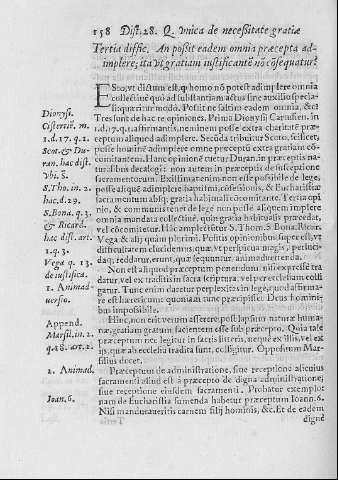 158 Dist. 28. Q. vnica de necessitate gratiæ
Tertia diffic. An possit eadem omnia præcepta ad-
implere; ita vt gratiam iustificantē nō cōsequatur?
ESto, vt dictum est, homo nō potest adimplere omnia
collectiuè quo ad substantiam actus sine auxilio specia-
li: quæritur modò. Possit ne saltim eadem omnia, &c?
Tres sunt de hac re opiniones. Prima Dionysij Cartusien. in
1. d. 17. q. 1. affirmātis, neminem posse extra charitatē præ-
ceptum aliquod adimplere. Secūda tribuitur Scoto, scilicet,
posse hominē adimplere omne præceptū extra gratiam cō-
comitantem. Hanc opinionē tuetur Duran. in præceptis na-
turalibus decalogi: non autem in præceptis de susceptione
sacramentorum. Existimat enim non esse possibile de lege,
posse aliquē adimplere baptismi, cōfessionis, & Eucharistiæ
sacramentum absq; gratia habituali cōcomitante. Tertia opi
nio, & communis tenet de lege non posse aliquem implere
omnia mandata collectiuè, quin gratia habitualis præcedat,
vel cōcomitetur. Hāc amplectūtur S. Thom. S. Bona. Ricar.
Vega & alij quam plurimi. Politis opinionibus super est, vt
difficultatem elucidemus, quæ, vt perspicua magis, peruia-
daq; reddatur, erunt, quæ sequuntur, animaduertenda.
Non est aliquod præceptum penendum nisi expresse tra
datur, vel ex traditis in sacra scriptura, vel per ecclesiam colli
gatur. Tunc enim daretur perplexitas in lege, quod affirma-
re est hæreticum: quoniam tunc præcipisset Deus homini-
bus impossibile.
Hinc, non erit verum asserere post lapsum naturæ huma-
næ, gratiam gratum facientem esse sub præcepto. Quia tale
præceptum nec legitur in sacris litteris, neque ex illis, vel ex
iis, quæ ab ecclesia tradita sunt, colligitur. Oppositum Mar-
silius docet.
Præceptum de administratione, siue receptione alicuius
sacramenti aliud est à præcepto de digna administratione,
siue receptione eiusdem sacramenti. Probatur exemplo:
nam de Eucharistia sumenda habetur præceptum Ioann. 6.
Nisi manducaueritis carnem filij hominis, &c. Et de eadem
digne
Dionysi.
Cisterciē. in
1. d. 17. q. 1.
Scot. & Du-
ran. hac dist.
Vbi. S.
S. Tho. in. 2.
hac. d. 29.
S. Bona. q. 3.
& Ricard.
hac dist. art.
1. q. 3.
Vega q. 13.
de iustifica.
1. Animad-
uersio.
Append.
Marsil. in. 2.
q. 18. art. 2.
2. Animad.
Ioan. 6.